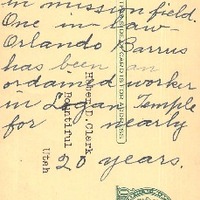 in mission field.
One in-law
Orlando Barrus
has been an
ordained worker
in Logan Temple
for nearly
20 years.
Heber D. Clark
Bountiful
Utah